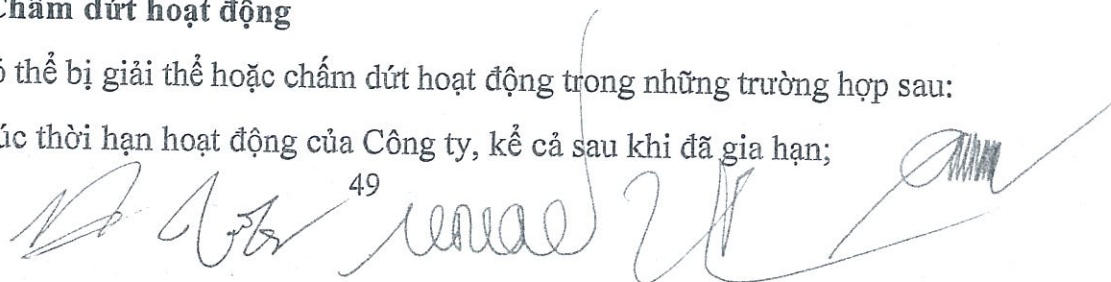 Chấm dứt hoạt động
ó thể bị giải thể hoặc chấm dứt hoạt động trong những trường hợp sau:
úc thời hạn hoạt động của Công ty, kể cả sau khi đã gia hạn;
49